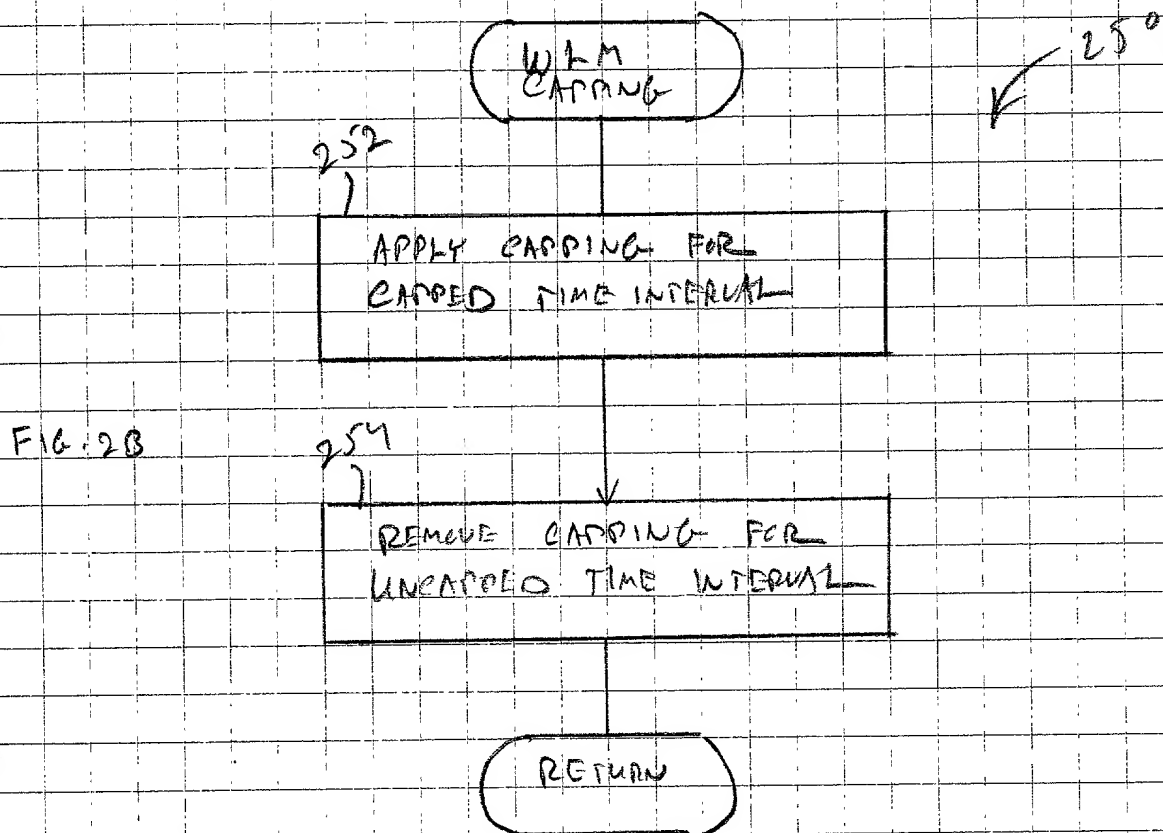 WLM
CAPPING
250
252
APPLY CAPPING FOR
CAPPED TIME INTERVAL
FIG. 2B
254
REMOVE CAPPING FOR
UNCAPPED TIME INTERVAL
RETURN